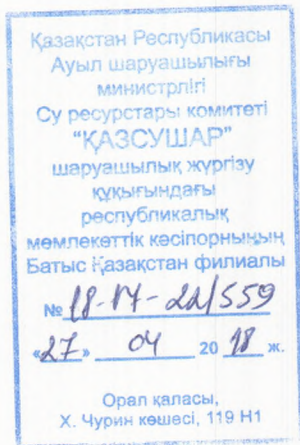 Қазақстан Республикасы
Ауыл шаруашылығы
министрлігі
Су ресурстары комитеті
“ҚАЗСУШАР”
шаруашылық жүргізу
құқығындағы
республикалық
мемлекеттік кәсіпорнының
Батыс Қазақстан филиалы
№ 18-14-22/559
«27» 04 2018 ж.
Орал қаласы,
Х. Чурин көшесі, 119 Н1